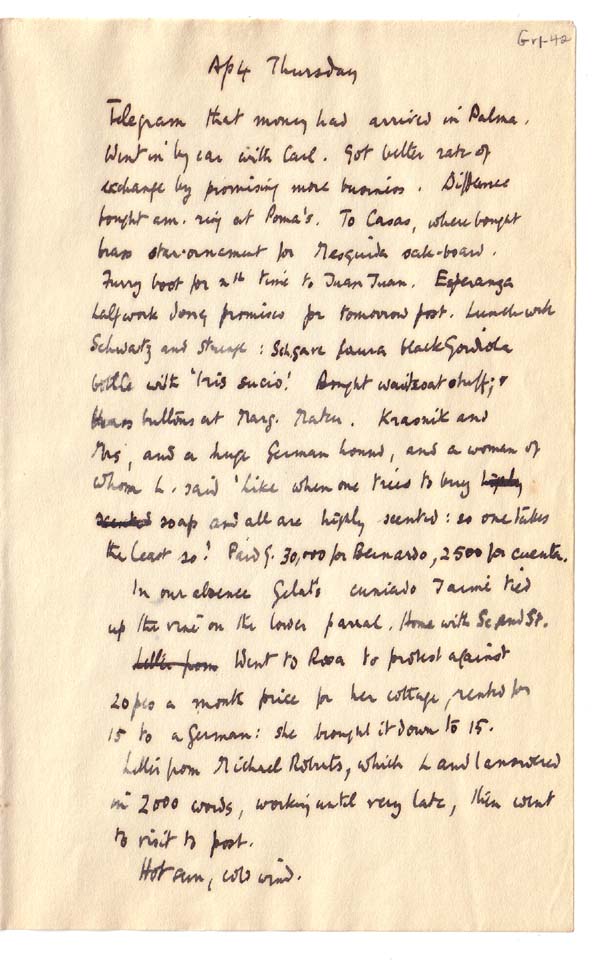 Grf-42
Ap 4 Thursday
Telegram that money had arrived in Palma.
Went in by car with Carl. Got better rate of
exchange by promising more business. Difference
bought am. ring at Poma's. To Casas, where bought
brass star-ornament for Mesquida
Furry boot for nth time to Juan Juan. Esperanza
half work done, promises for tomorrow post. Lunch with
Schwartz and : Sch. gave Laura black Gordiola
bottle with 'Iris sucio'. Bought waistcoat stuff; &
buttons at Marg. Krasnik and
Mrs, and a huge German hound, and a woman of
whom L. said 'Like when one tries to buy highly
scented soap and all are highly scented: so one takes
the least so! Paid G. 30,000 for Bernardo, 2500 for cuenta.
In our absence Gelat's cuniado Jaime tied
up the vine on the lower parral. Home with Sc. and St.
Letter from Went to Rosa to protest against
20 pes a month price for her cottage, rented for
15 to a German: she brought it down to 15.
Letter from Michael Roberts, which L and I answered
in 2000 words, working until very late, then went
to to post.
Hot sun, cold wind.